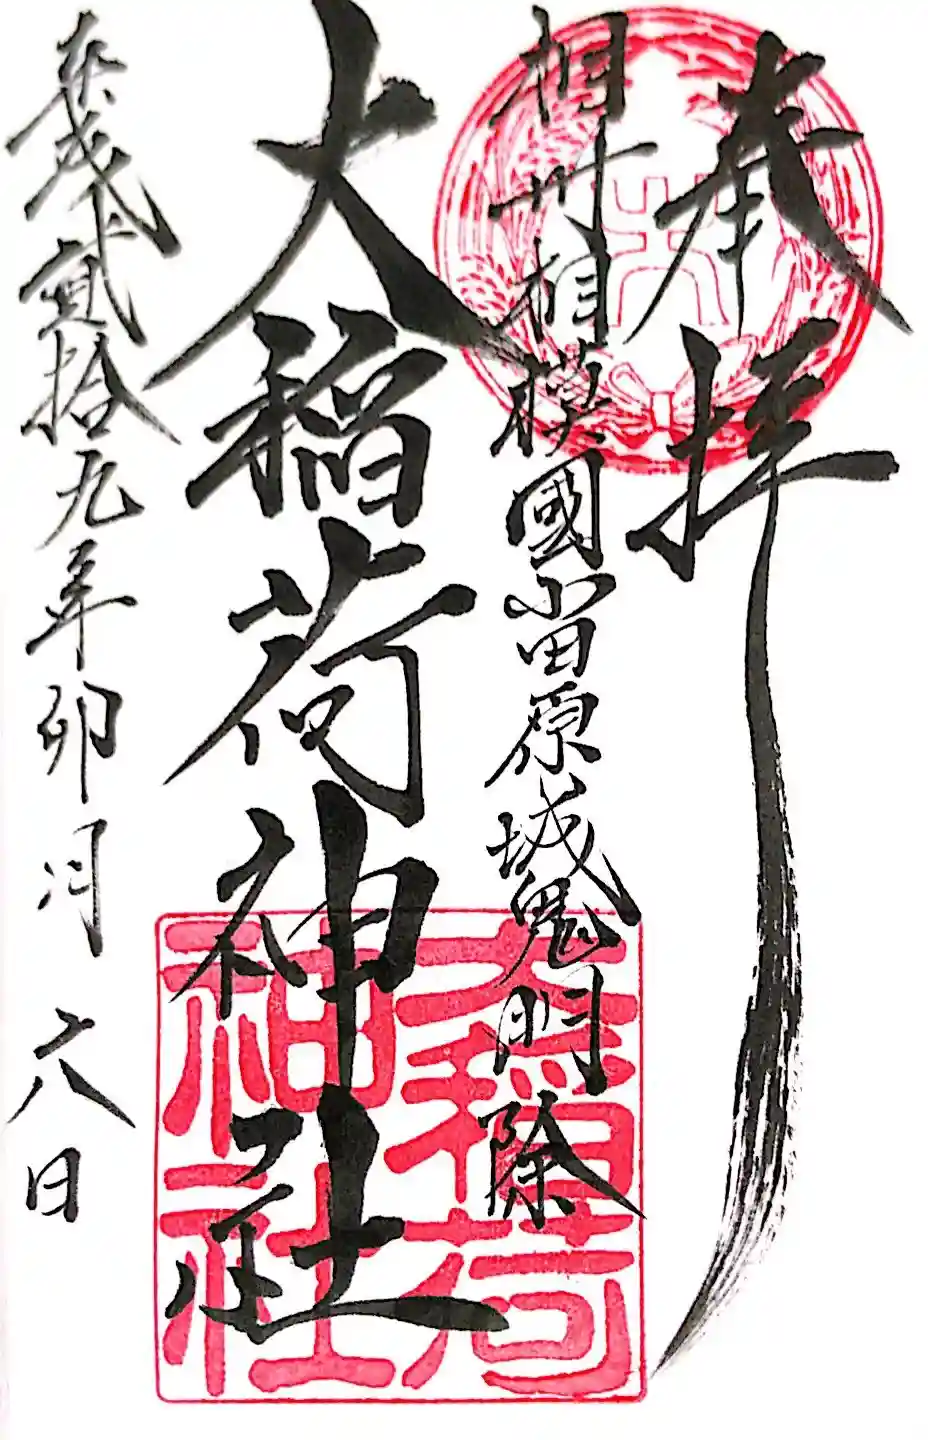 奉拝
相州相模國小田原城鬼門除
大稲荷神社
平成貳拾九年卯月六日
大
大稲荷
神社